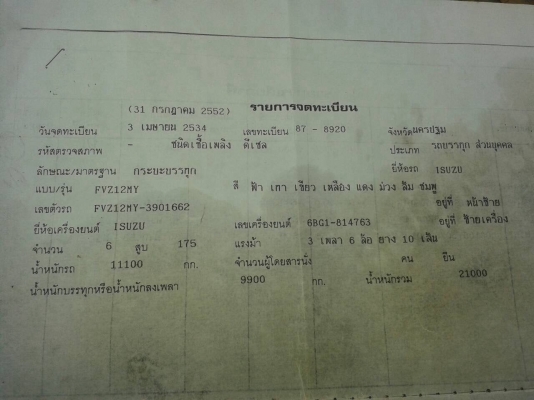 (31 กรกฎาคม 2552) รายการจดทะเบียน
วันจดทะเบียน 3 เมษายน 2534 เลขทะเบียน 87 - 8920 จังหวัดนครปฐม
รหัสตรวจสภาพ - ชนิดเชื้อเพลิง ดีเซล ประเภท รถบรรทุก ส่วนบุคคล
ลักษณะ/มาตรฐาน กระบะบรรทุก ยี่ห้อรถ ISUZU
แบบ/รุ่น FVZ12MY สี ฟ้า เทา เขียว เหลือง แดง ม่วง ส้ม ชมพู
เลขตัวรถ FVZ12MY-3901662 อยู่ที่ หน้าซ้าย
ยี่ห้อเครื่องยนต์ ISUZU เลขเครื่องยนต์ 6BG1-814763 อยู่ที่ ซ้ายเครื่อง
จำนวน 6 สูบ 175 แรงม้า 3 เพลา 6 ล้อ ยาง 10 เส้น
น้ำหนักรถ 11100 กก. จำนวนผู้โดยสารนั่ง คน ยืน
น้ำหนักบรรทุกหรือน้ำหนักลงเพลา 9900 กก. น้ำหนักรวม 21000